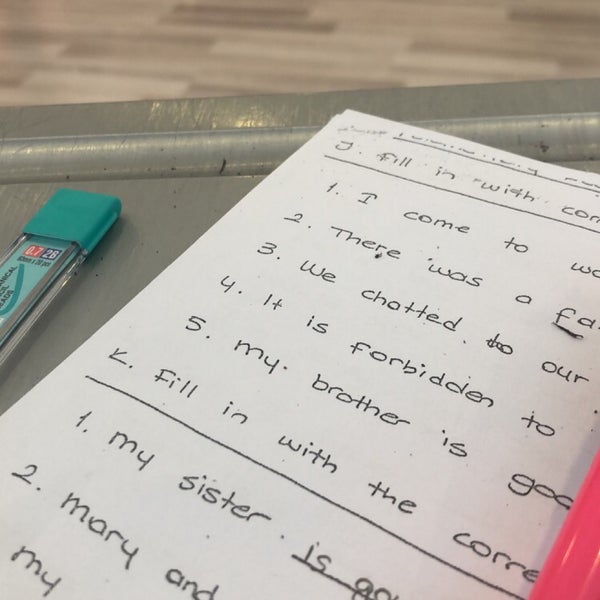 J. Fill in with
1. I come to
2. There was a
3. We chatted to our
4. It is forbidden to
5. my brother is
K. Fill in with the
1. my sister is
2. mary and
my
0.7 2B